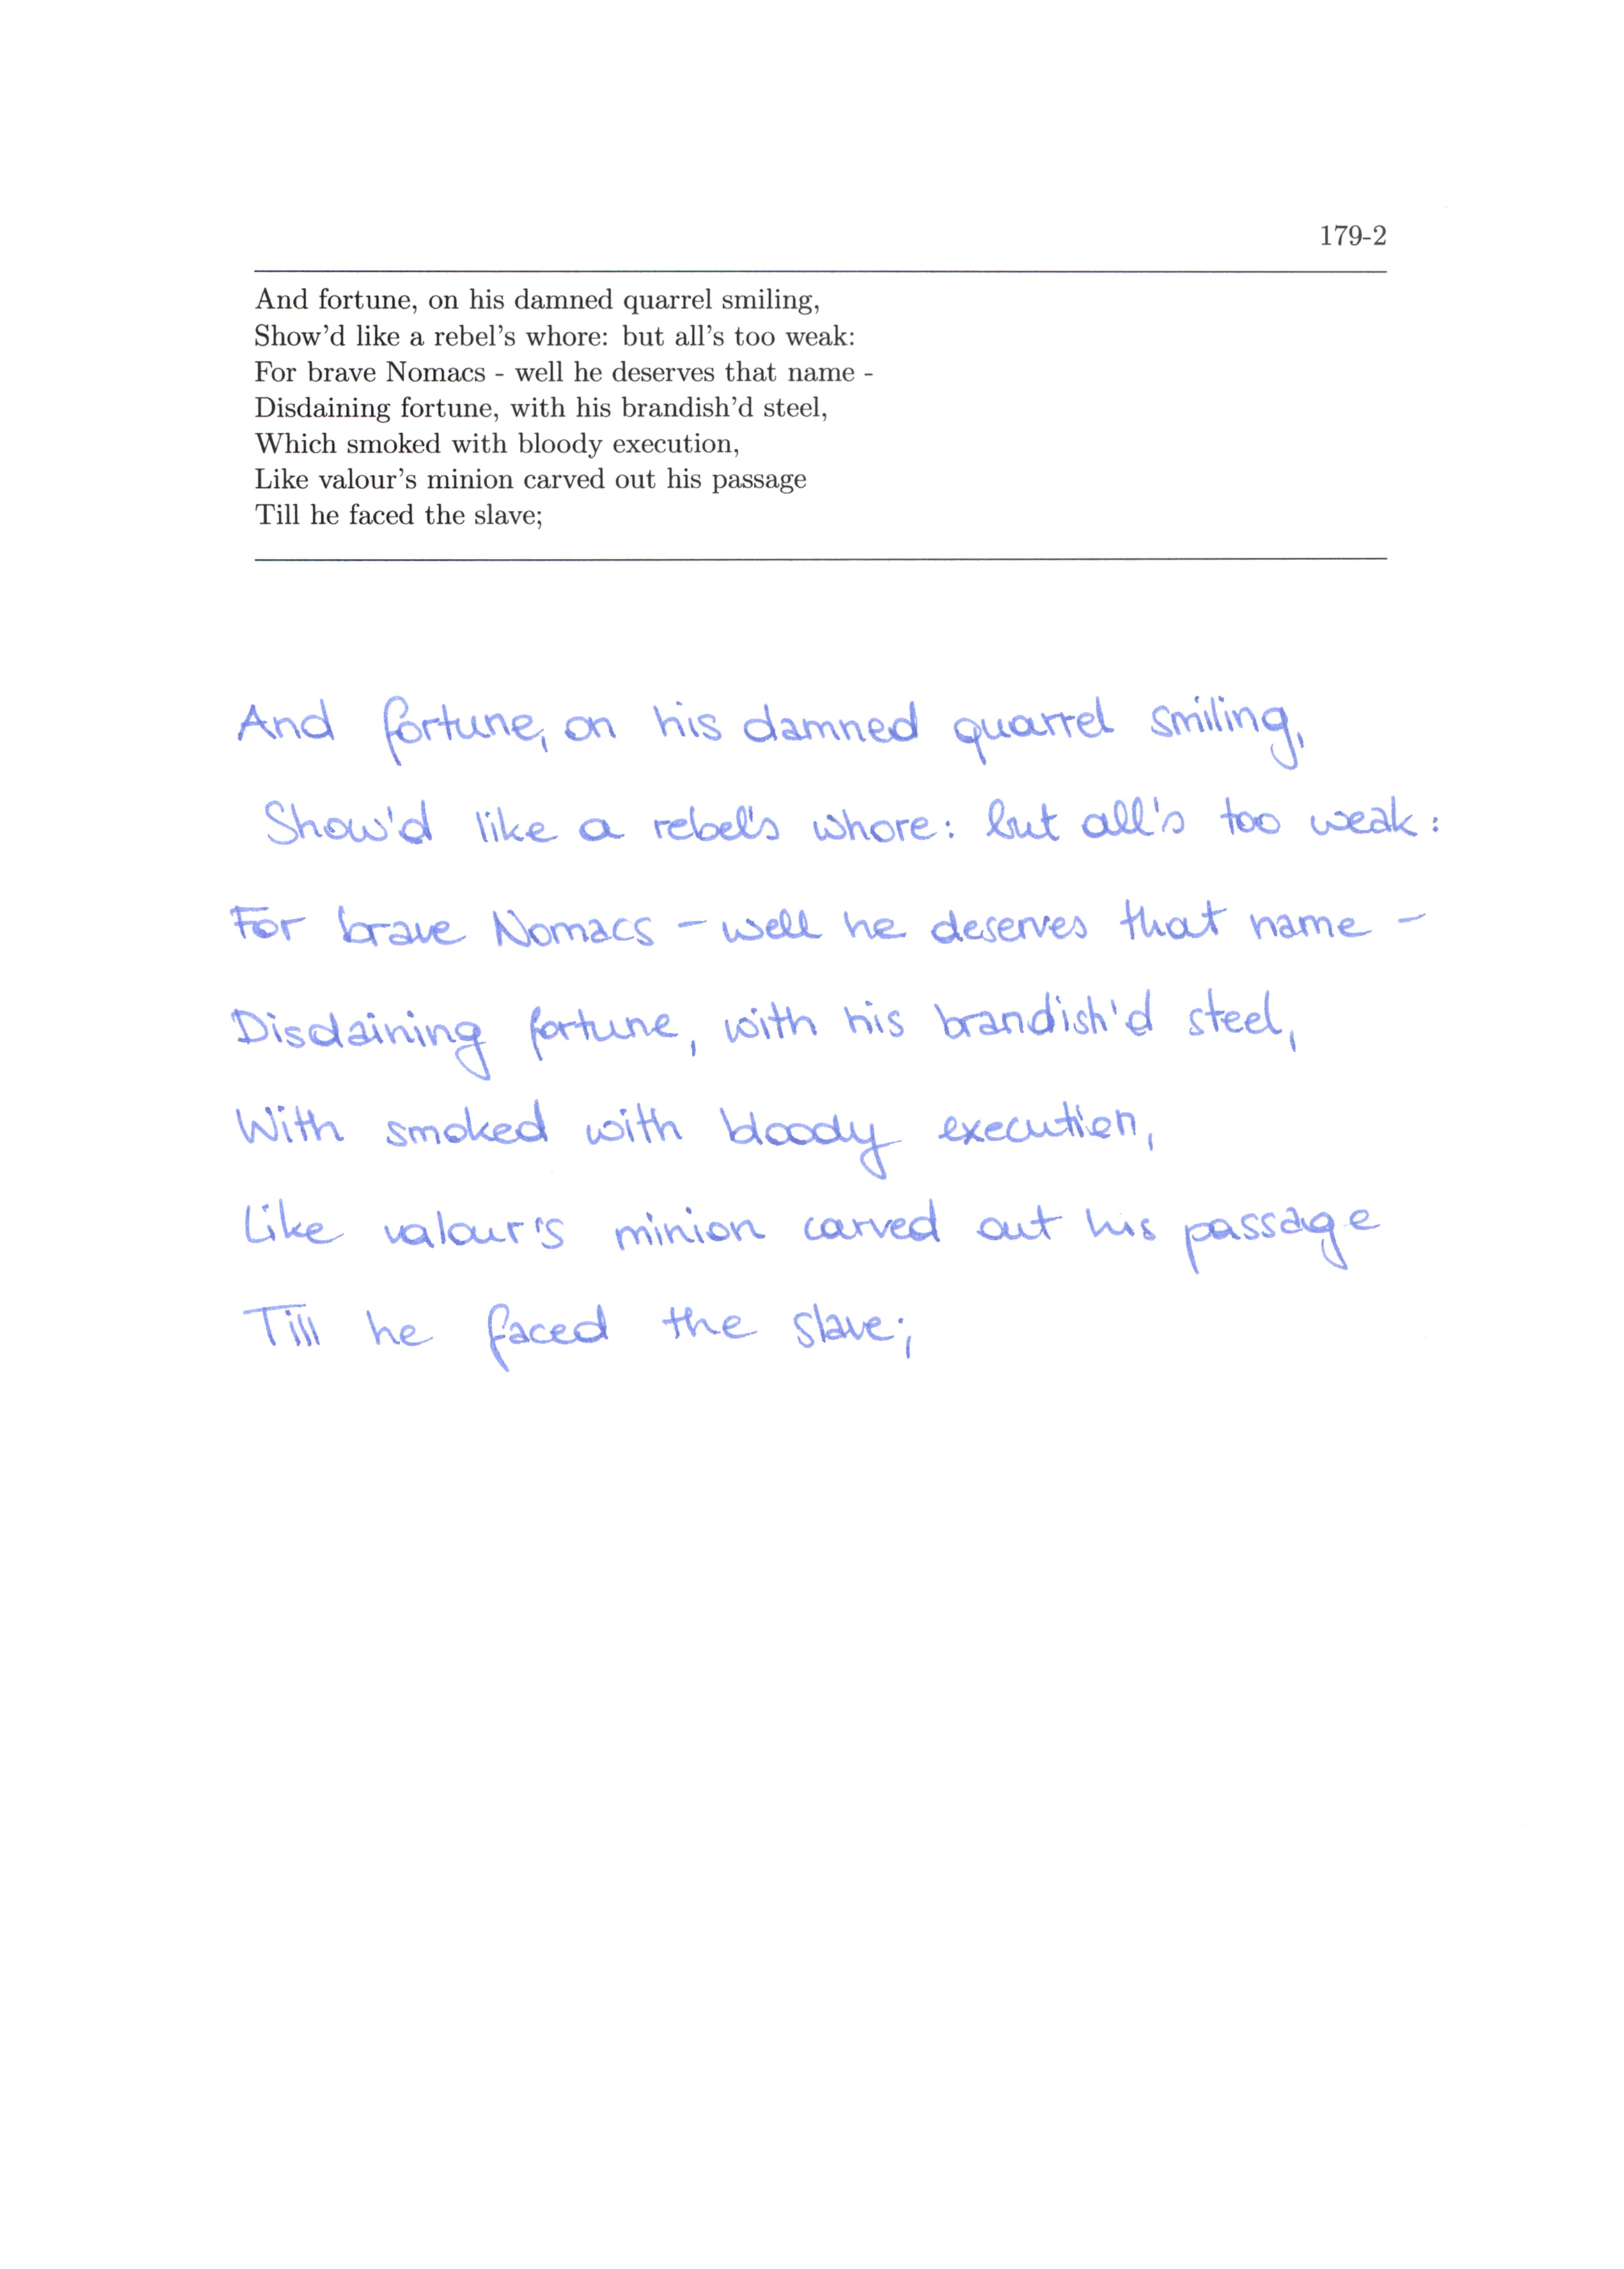 179-2
And fortune, on his damned quarrel smiling,
Show'd like a rebel's whore: but all's too weak:
For brave Nomacs - well he deserves that name -
Disdaining fortune, with his brandish'd steel,
Which smoked with bloody execution,
Like valour's minion carved out his passage
Till he faced the slave;
And fortune, on his damned quarrel smiling,
Show'd like a rebel's whore: but all's too weak:
For brave Nomacs - well he deserves that name -
Disdaining fortune, with his brandish'd steel,
With smoked with bloody execution,
Like valour's minion carved out his passage
Till he faced the slave;